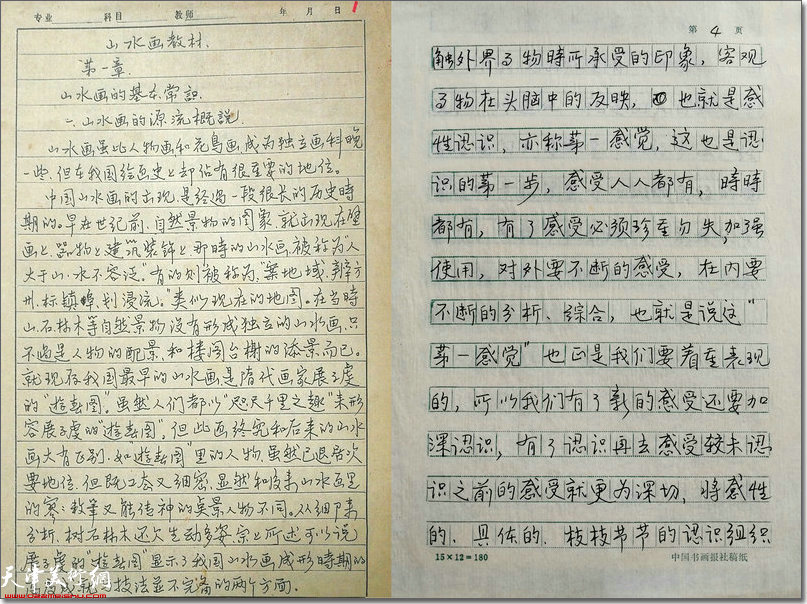 专业 科目 教师 年 月 日
1
山水画教材.
第一章.
山水画的基本常识.
一.山水画的源流概説.
山水画虽比人物画和花鳥画成为独立画科晚
一些,但在我国绘画史上却佔有很重要的地位.
中国山水画的出现,是经過一段很长的历史時
期的.早在世纪前,自然景物的图象,就出现在壁
画上、器物上建筑装飾上那時的山水画被称为"人
大于山、水不容泛."有的则被称为"案地域,辨方
州,标镇阜,划浸流."类似现在的地图。在当時
山石林木等自然景物没有形成独立的山水画,只
不過是人物的配景,和楼阁台榭的添景而已。
就现存我国最早的山水画是隋代画家展子虔
的"遊春图"。虽然人们都以"咫尺千里之趣"来形
容展子虔的"遊春图"。但此画终究和后来的山水
画大有区别.如"遊春图"里的人物虽然已退居次
要地位,但既工态又细密,显然和后来山水画里
的寥寥数筆又能传神的点景人物不同。从细節来
分析,树石林木还欠生动多姿.综上所述可以说
展子虔的"遊春图"显示了我国山水画成形時期的
技法並不完备的两个方面.
天津美术网
www.022meishu.com
第 4 页
触外界事物時所承受的印象,客观
事物在头脑中的反映,也就是感
性认识,亦称第一感觉,这也是认
识的第一步,感受人人都有,時時
都有,有了感受必须珍重勿失,加强
使用,对外要不断的感受,在内要
不断的分析、综合,也就是说这"
第一感觉"也正是我们要着重表现
的,所以我们有了新的感受还要加
深认识,有了认识再去感受较未认
识之前的感受就更为深切,将感性
的、具体的、枝枝节节的认识组织
15×12=180
中国书画报社稿纸